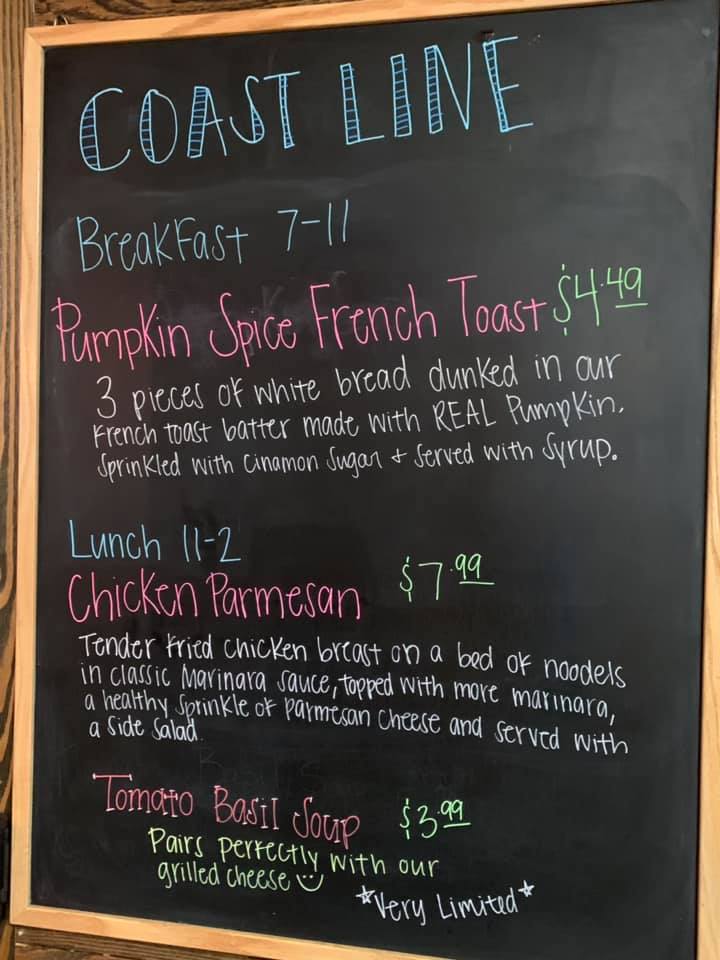 COAST LINE
BreakFast 7-11
Pumpkin Spice French Toast $4.49
3 pieces of white bread dunked in our
French toast batter made with REAL Pumpkin.
Sprinkled with Cinamon Sugar + Served with Syrup.
Lunch 11-2
Chicken Parmesan $7.99
Tender fried chicken breast on a bed of noodels
in classic Marinara sauce, topped with more marinara,
a healthy sprinkle of parmesan cheese and served with
a side salad.
Tomato Basil Soup $3.99
Pairs perfectly with our
grilled cheese
*Very Limited*